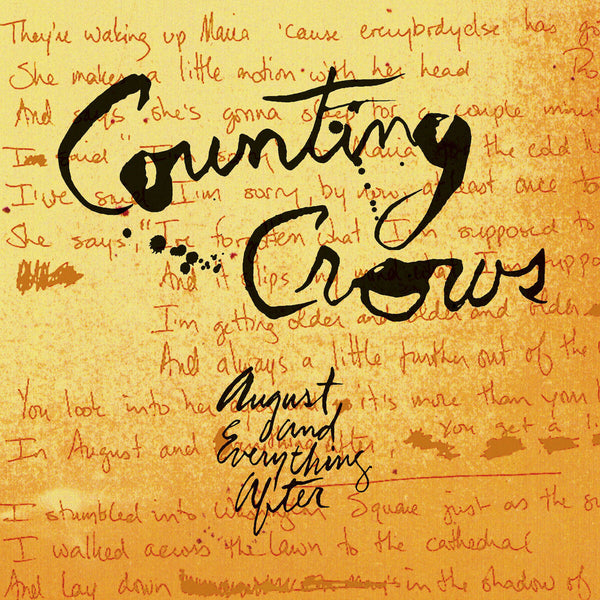 They're waking up Maria 'cause everybody else has go
She makes a little motion with her head
And says she's gonna sleep for a couple minut
Counting
I said "I'm sorry Maria for the cold
I've said I'm sorry by now at least once to
She says, "I've forgotten what I'm supposed to
Crows
And it slips my mind what I'm suppo
I'm getting older and older and older
And always a little further out of the
August
and
Everything
After
You look into her it's more than you
In August and after, you get a li
I stumbled into Square just as the su
I walked across the lawn to the cathedral
And lay down in the shadow of